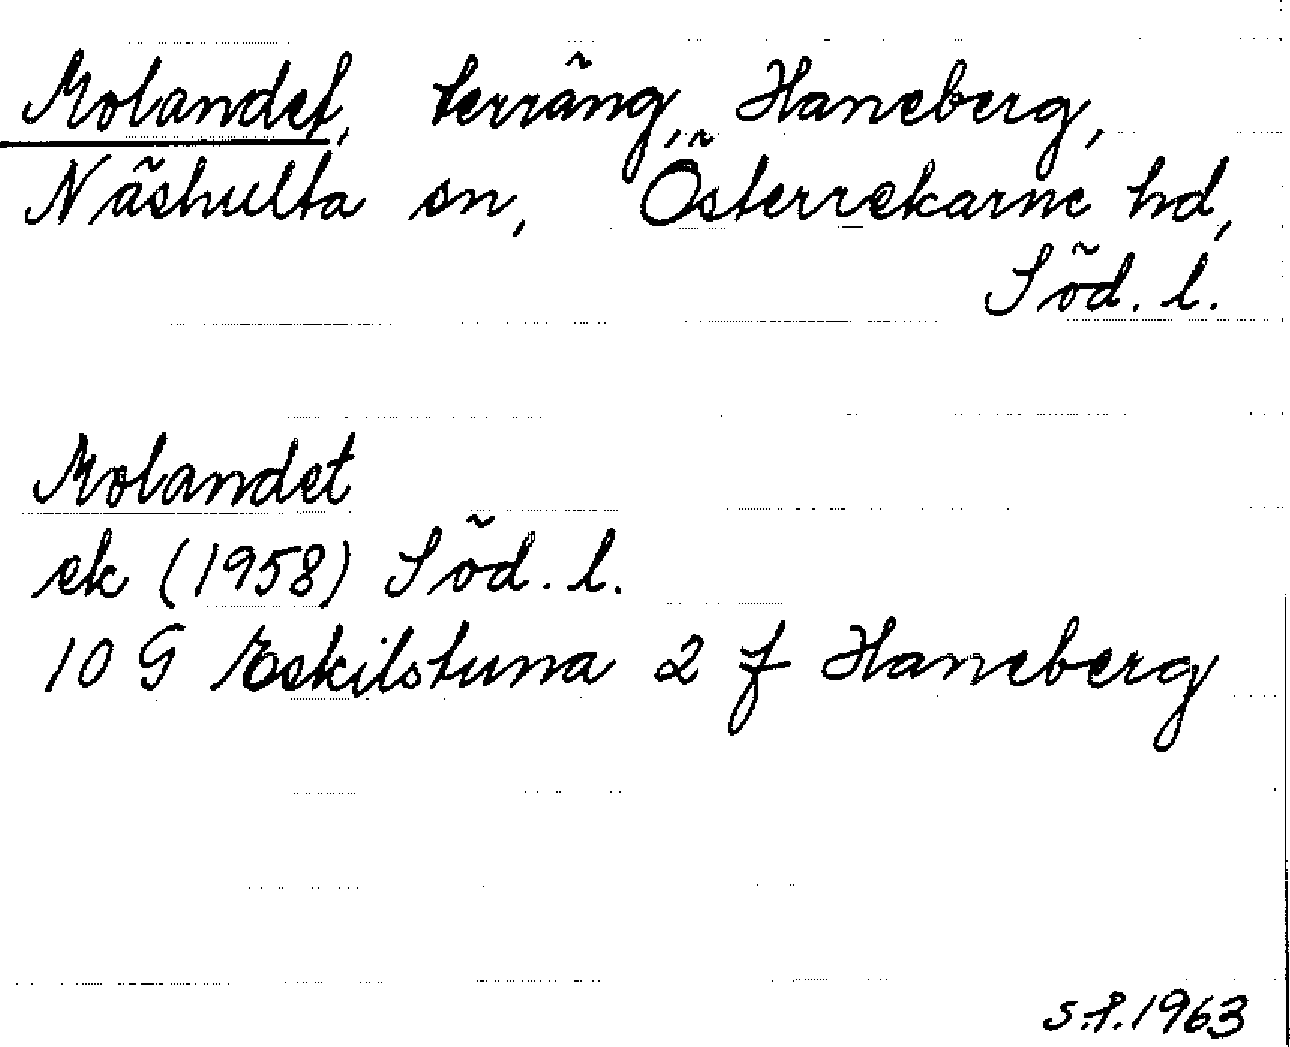 Molandet, terräng, Haneberg,
Näshulta sn, Österrekarne hd,
Söd. l.
Molandet
ek (1958) Söd. l.
10 G Eskilstuna 2 f Haneberg
s.f. 1963